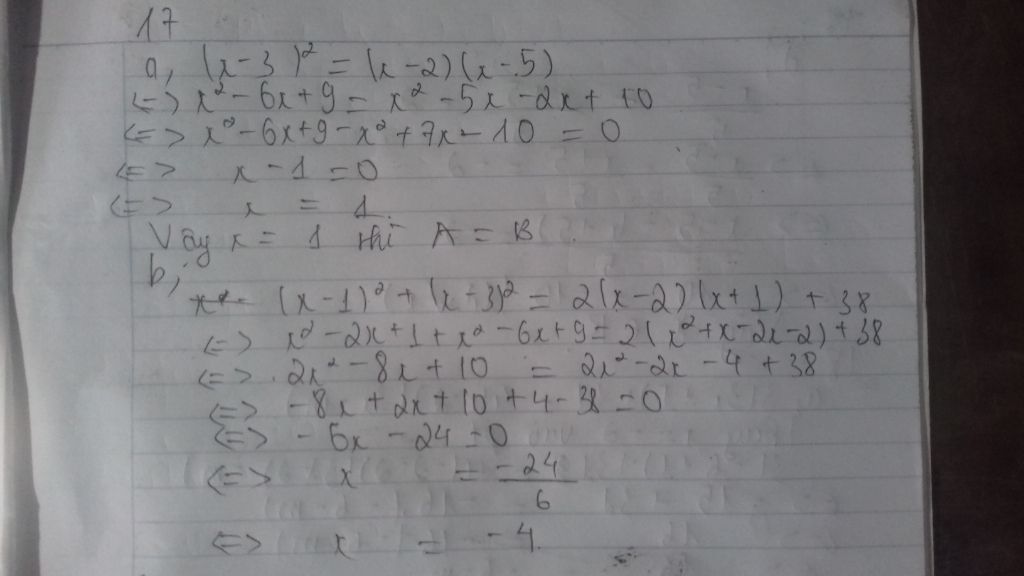 17
a, (x-3)² = (x-2)(x-5)
<=> x² - 6x + 9 = x² - 5x - 2x + 10
<=> x² - 6x + 9 - x² + 7x - 10 = 0
<=> x - 1 = 0
<=> x = 1.
Vậy x = 1 thì A = B
b,
(x-1)² + (x-3)² = 2(x-2)(x+1) + 38
<=> x² - 2x + 1 + x² - 6x + 9 = 2(x² + x - 2x - 2) + 38
<=> 2x² - 8x + 10 = 2x² - 2x - 4 + 38
<=> -8x + 2x + 10 + 4 - 38 = 0
<=> -6x - 24 = 0
<=> x = -24/6
<=> x = -4.